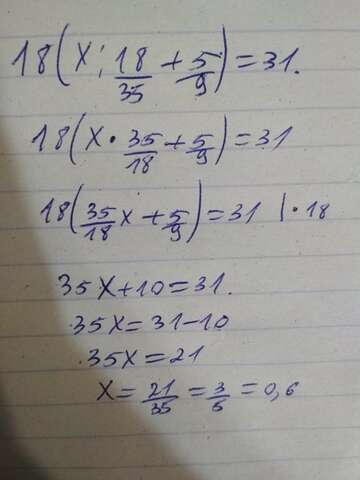 18(x : 18/35 + 5/9) = 31.
18(x • 35/18 + 5/9) = 31
18(35/18 x + 5/9) = 31 | • 18
35x + 10 = 31.
35x = 31 - 10
35x = 21
x = 21/35 = 3/5 = 0,6